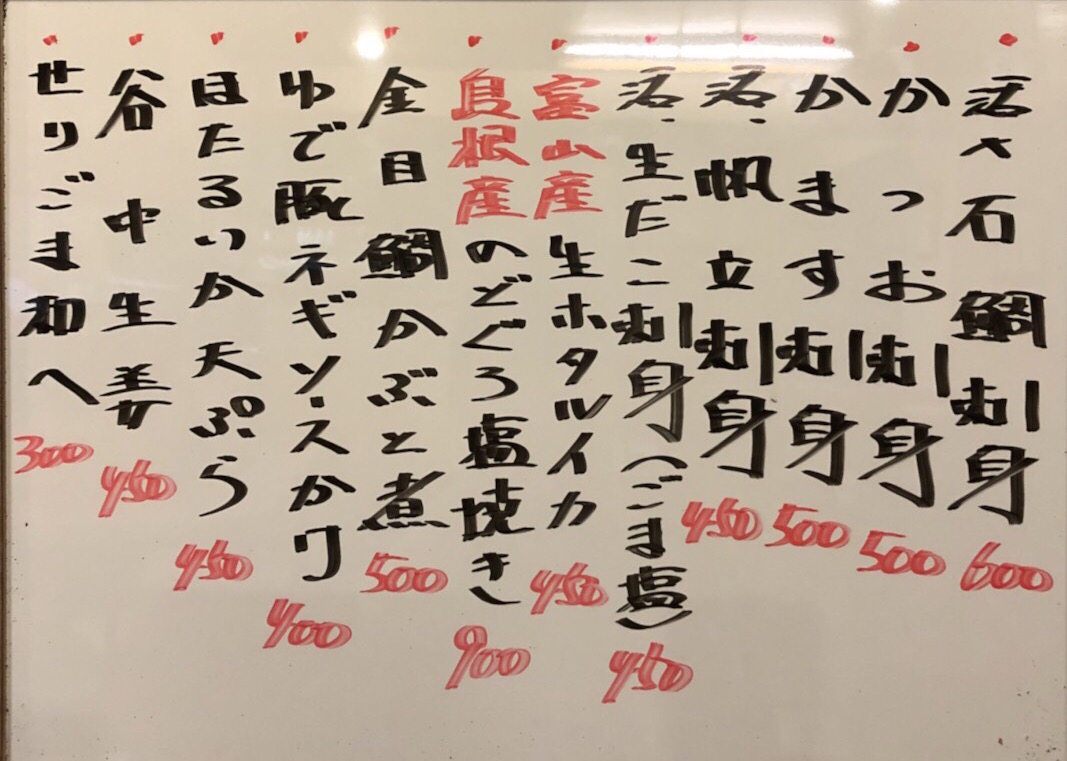 活〆石鯛刺身 600
かつお刺身 500
かます刺身 500
活、帆立刺身 450
活、生だこ刺身(ごま塩) 450
富山産生ホタルイカ 450
島根産のどぐろ塩焼き 900
金目鯛かぶと煮 500
ゆで豚ネギソースかけ 400
ほたるいか天ぷら 450
谷中生姜 450
せりごま和へ 300